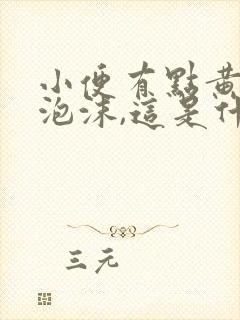 小便有點黃
泡沫,這是什
三元